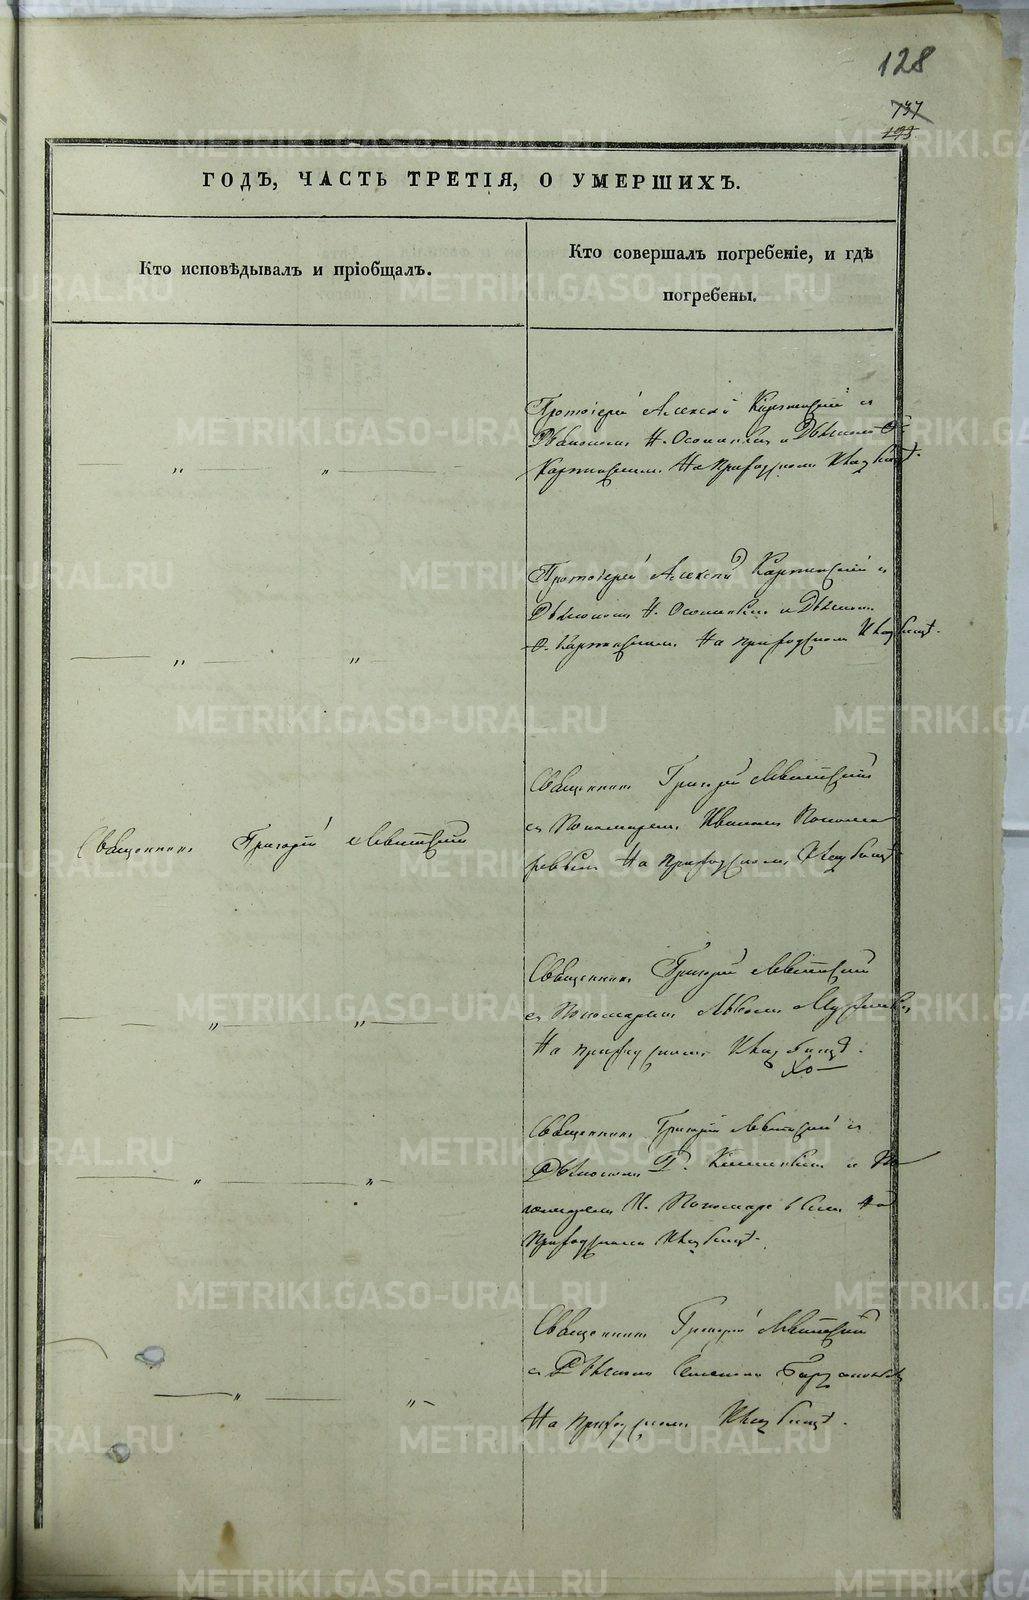 128
737
193
ГОДЪ, ЧАСТЬ ТРЕТІЯ, О УМЕРШИХЪ.
Кто исповѣдывалъ и пріобщалъ.
Кто совершалъ погребеніе, и гдѣ
погребены.
Протоіерей Алексій Карпинскій съ
Діакономъ И. и Дьячкомъ Ѳ.
Карпинскимъ. На приходскомъ кладбищѣ.
Протоіерей Алексій Карпинскій съ
Діакономъ И. и Дьячкомъ
Ѳ. Карпинскимъ. На приходскомъ кладбищѣ.
Священникъ Григорій Левитскій
Священникъ Григорій Левитскій
съ Пономаремъ Иваномъ Понома
ревымъ На приходскомъ кладбищѣ
Священникъ Григорій Левитскій
съ Пономаремъ
На приходскомъ кладбищѣ.
Священникъ Григорій Левитскій съ
Діакономъ и По
номаремъ И. Пономаревымъ На
Приходскомъ кладбищѣ.
Священникъ Григорій Левитскій
съ Дьячкомъ
На приходскомъ кладбищѣ.
METRIKI.GASO-URAL.RU